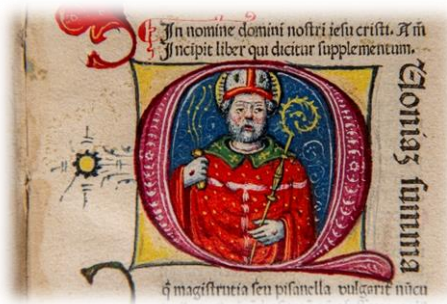 In nomine domini nostri iesu cristi. Am̄
Incipit liber qui dicitur supplementum.
Q
Uoniaʒ summa
q̄ magistrutia seu pisanella vulgarit̄ nūcu